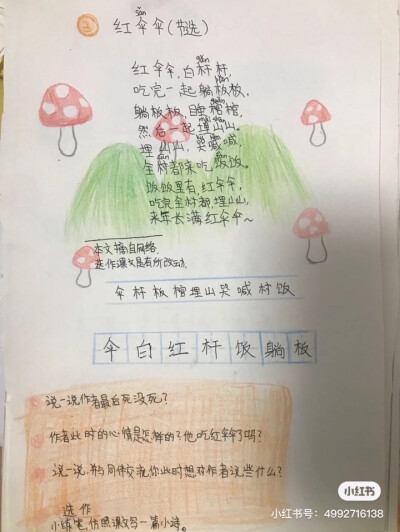 ③ 红伞伞(节选)
sǎn
红伞伞,白杆杆,
吃完一起躺板板,
躺板板,睡棺棺,
然后一起埋山山。
埋山山,哭喊喊,
全村都来吃饭饭。
饭饭里有,红伞伞,
吃完全村都埋山山,
来年长满红伞伞~
本文摘自网络,
选作课文是有所改动.
伞杆板棺埋山哭喊村饭
伞白红杆饭躺板
说一说作者最后死没死?
作者此时的心情是怎样的?他吃红伞伞了吗?
说一说,并与同伴交流,你此时想对作者说些什么?
选作
小练笔,仿照课文写一篇小诗。
小红书
小红书号:4992716138